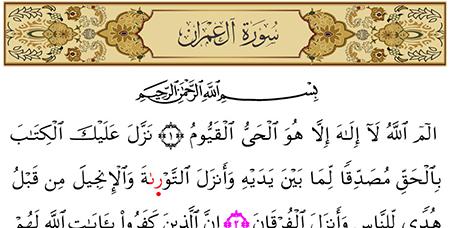 سُورَةُ آلِ عِمْرَانَ
بِسْمِ اللَّهِ الرَّحْمَٰنِ الرَّحِيمِ
الٓمٓ اللَّهُ لَآ إِلَٰهَ إِلَّا هُوَ الْحَيُّ الْقَيُّومُ ﴿١﴾ نَزَّلَ عَلَيْكَ الْكِتَٰبَ
بِالْحَقِّ مُصَدِّقًا لِّمَا بَيْنَ يَدَيْهِ وَأَنزَلَ التَّوْرَىٰةَ وَالْإِنجِيلَ مِن قَبْلُ
هُدًى لِّلنَّاسِ وَأَنزَلَ الْفُرْقَانَ ﴿٢﴾ إِنَّ الَّذِينَ كَفَرُواْ بِـَٔايَٰتِ اللَّهِ لَهُمْ